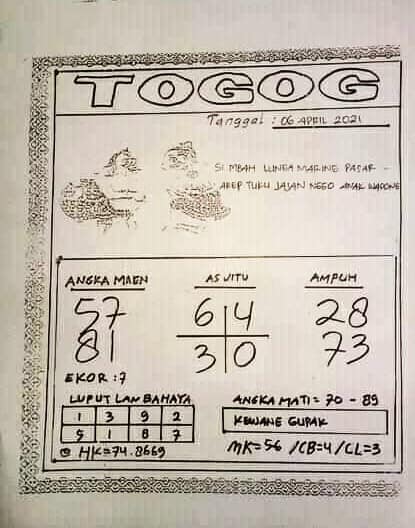 TOGOG
Tanggal : 06 APRIL 2021
SI MBAH LUNGA MARING PASAR -
AREP TUKU JAJAN NEGO ANAK WADONE
ANGKA MAEN
57
81
EKOR : 7
AS JITU
6 4
3 0
AMPUH
28
73
LUPUT LAN BAHAYA
1 3 9 2
5 1 8 7
HK=74.8669
ANGKA MATI = 70 - 89
KEWANE GUPAK
MK=56 /CB=4/CL=3